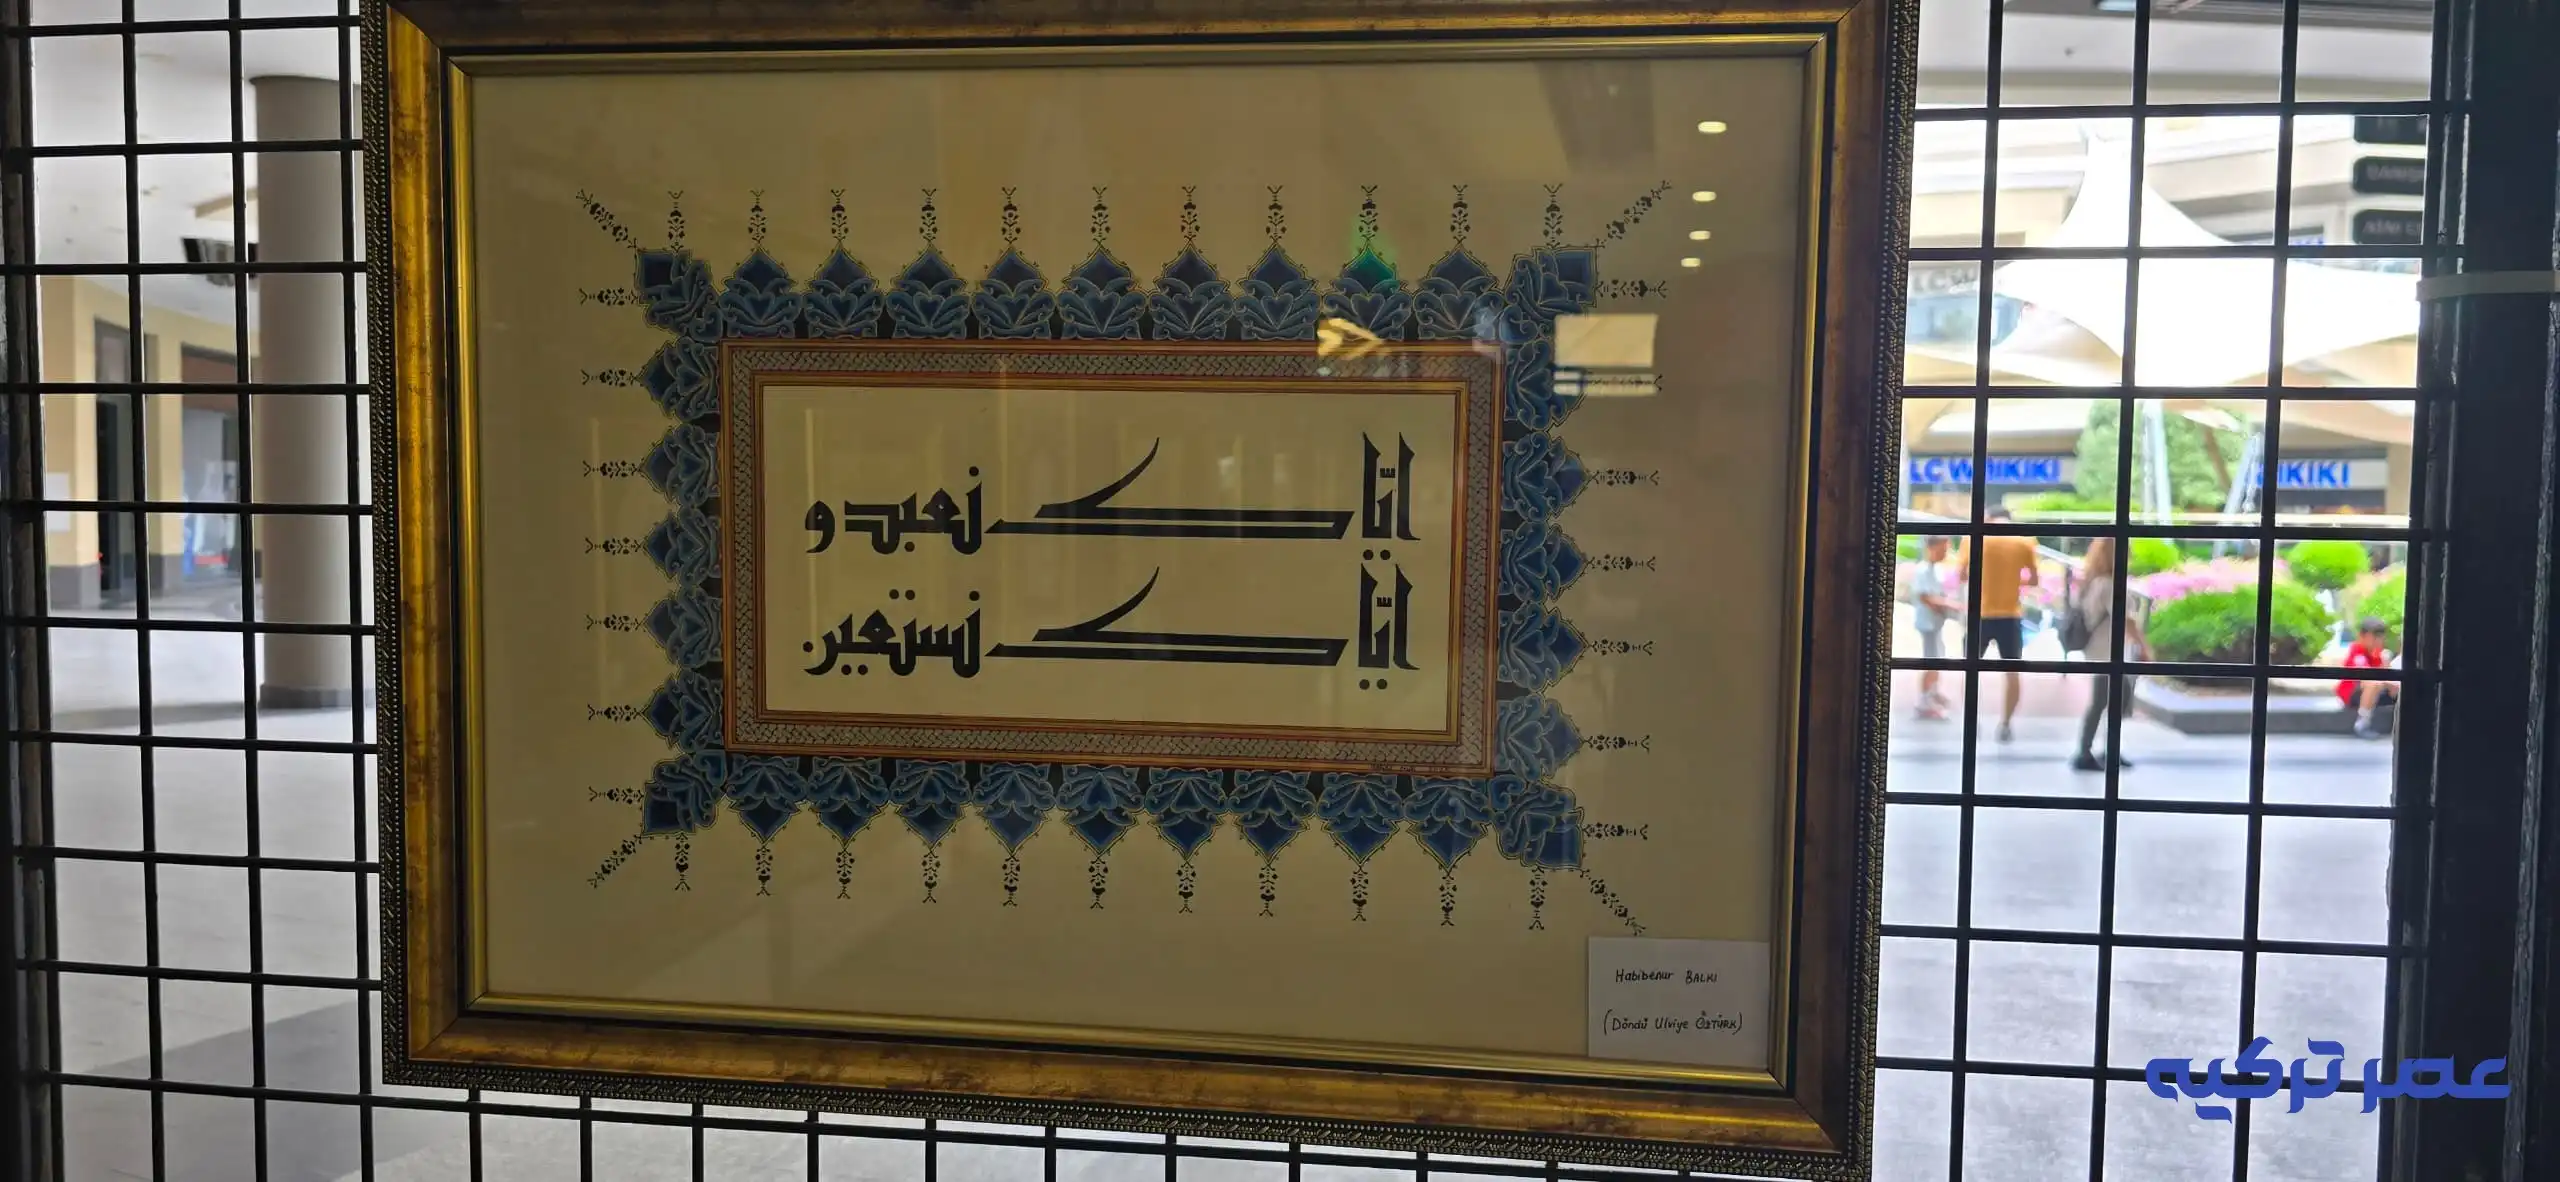 إيّاك نعبد و
إيّاك نستعين
Habibenur BALKI
(Döndü Ulviye ÖZTÜRK)
LC WAIKIKI
عصر ترکیه